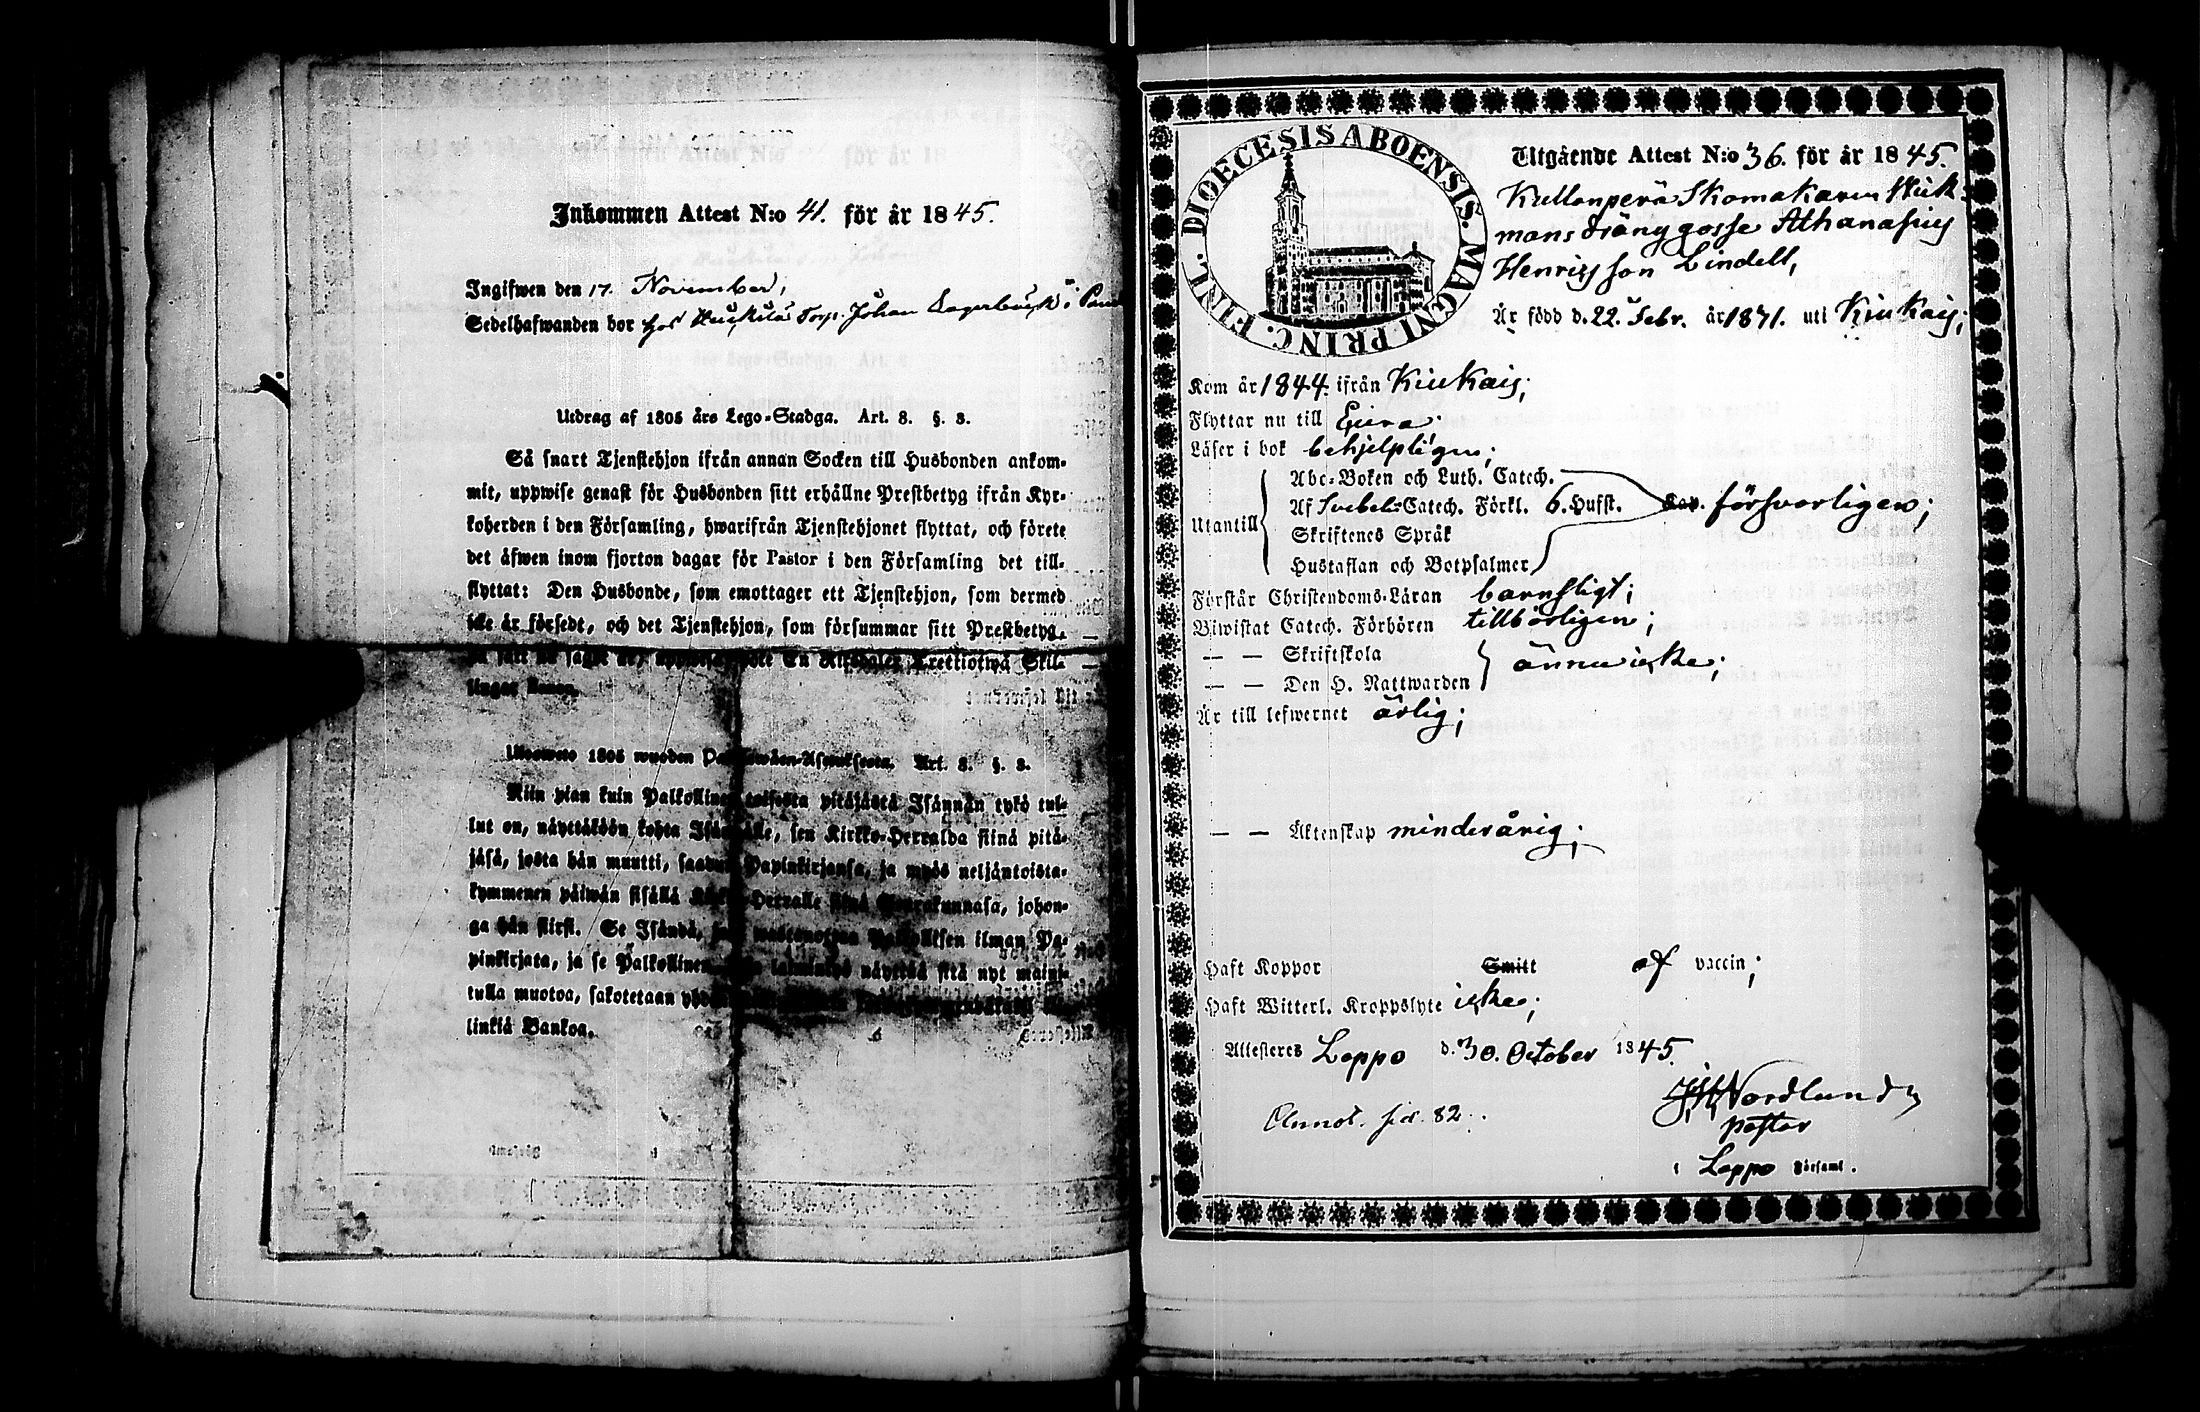 Inkommen Attest N:o 41. för år 1845.
Ingifwen den 17. November,
Sedelhafwanden bor hos Torp. Johan Lagerbäck i
Utdrag af 1805 års Lego-Stadga. Art. 8. §. 3.
Så snart Tjenstehjon ifrån annan Socken till Husbonden ankom-
mit, uppwise genast för Husbonden sitt erhållne Prestbetyg ifrån Kyr-
koherden i den Församling, hwarifrån Tjenstehjonet flyttat, och förete
det äfwen inom fjorton dagar för Pastor i den Församling det till-
flyttat: Den Husbonde, som emottager ett Tjenstehjon, som dermed
icke är försedt, och det Tjenstehjon, som försummar sitt Prestbetyg,
En Riksdaler Trettiotwå Skil-
lingar Banco.
Ulosweto 1805 wuoden Art. 8. §. 3.
Niin pian kuin Palkollinen toisesta pitäjästä Isännän tykö tul-
lut on, näyttäköön kohta Isännälle, sen Kirkko-Herralda siinä pitä-
jäsä, josta hän muutti, saadun Papinkirjansa, ja myös neljäntoista-
kymmenen päiwän sisällä Kirkko-Herralle siinä Seurakunnasa, johon-
ga hän siirsi. Se Isändä, joka Palkollisen ilman Pa-
pinkirjata, ja se Palkollinen näyttää sitä nyt mainі-
tulla muotoa, sakotetaan
linkiä Bankoa.
DIOECESIS ABOENSIS. MAGNI PRINC. FINL.
Utgående Attest N:o 36. för år 1845.
Kullanperä Skomakaren Huk-
mans dränggosse Athanasius
Henricsson Lindell,
Är född d. 22. Febr. år 1831. uti Kiukais;
Kom år 1844. ifrån Kiukais;
Flyttar nu till Eura.
Läser i bok behjelpligen;
Utantill
Abc-Boken och Luth. Catech.
Af Svebel: Catech. Förkl. 6. Hufst. Kan. försvarligen;
Skriftenes Språk
Hustaflan och Botpsalmer
Förstår Christendoms-Läran barnsligt;
Biwistat Catech. Förhören tillbörligen;
— — Skriftskola
ännu icke;
— — Den H. Nattwarden
Är till lefwernet ärlig;
— — Äktenskap minderårig;
Haft Koppor Smitt af vaccin;
Haft Witterl. Kroppslyte icke;
Attesteres Loppo d. 30. October 1845.
JH Nordlund
pastor
Olnnot. sid. 82.
i Loppo Församl.